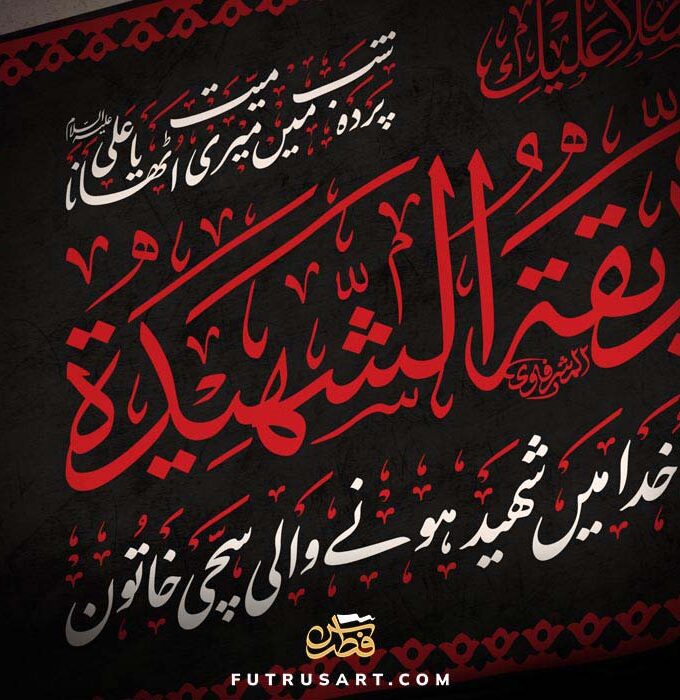 عليك
پردہ شب میں میری میت اٹھانا یا علی علیہ السلام
يقة الشهيدة
المشرفاوي
خدا میں شہید ہونے والی سچی خاتون
فطرس
FUTRUSART.COM